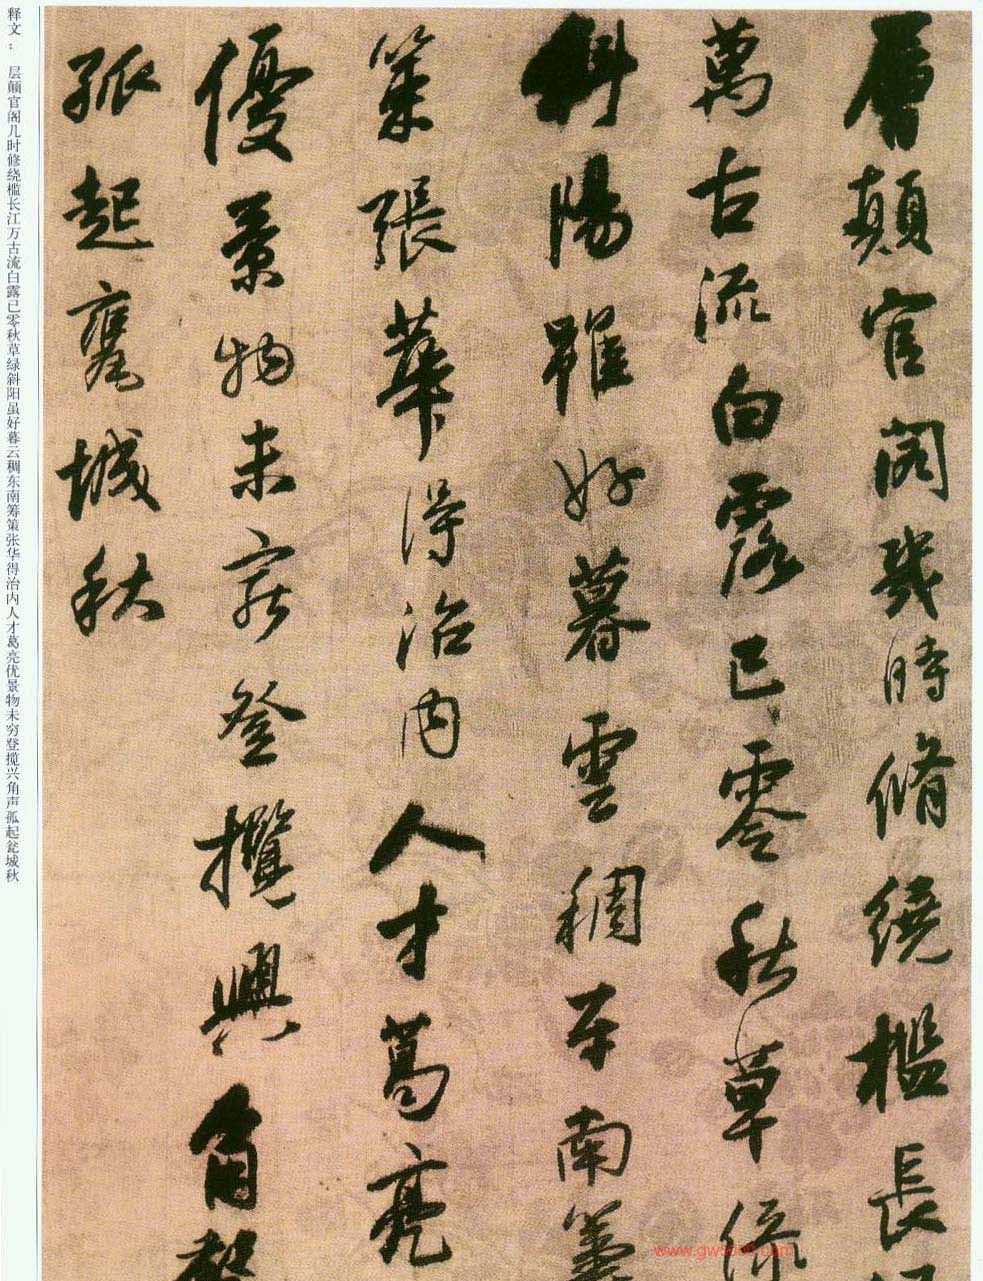 層顛官閣幾時脩繞檻長
萬古流白露已零秋草
斜陽雖好暮雲稠東南籌
策張華得治内人才葛亮
優景物未窮登攬興角聲
孤起甕城秋
释文： 层颠官阁几时修绕槛长江万古流白露已零秋草绿斜阳虽好暮云稠东南筹策张华得治内人才葛亮优景物未穷登揽兴角声孤起瓮城秋